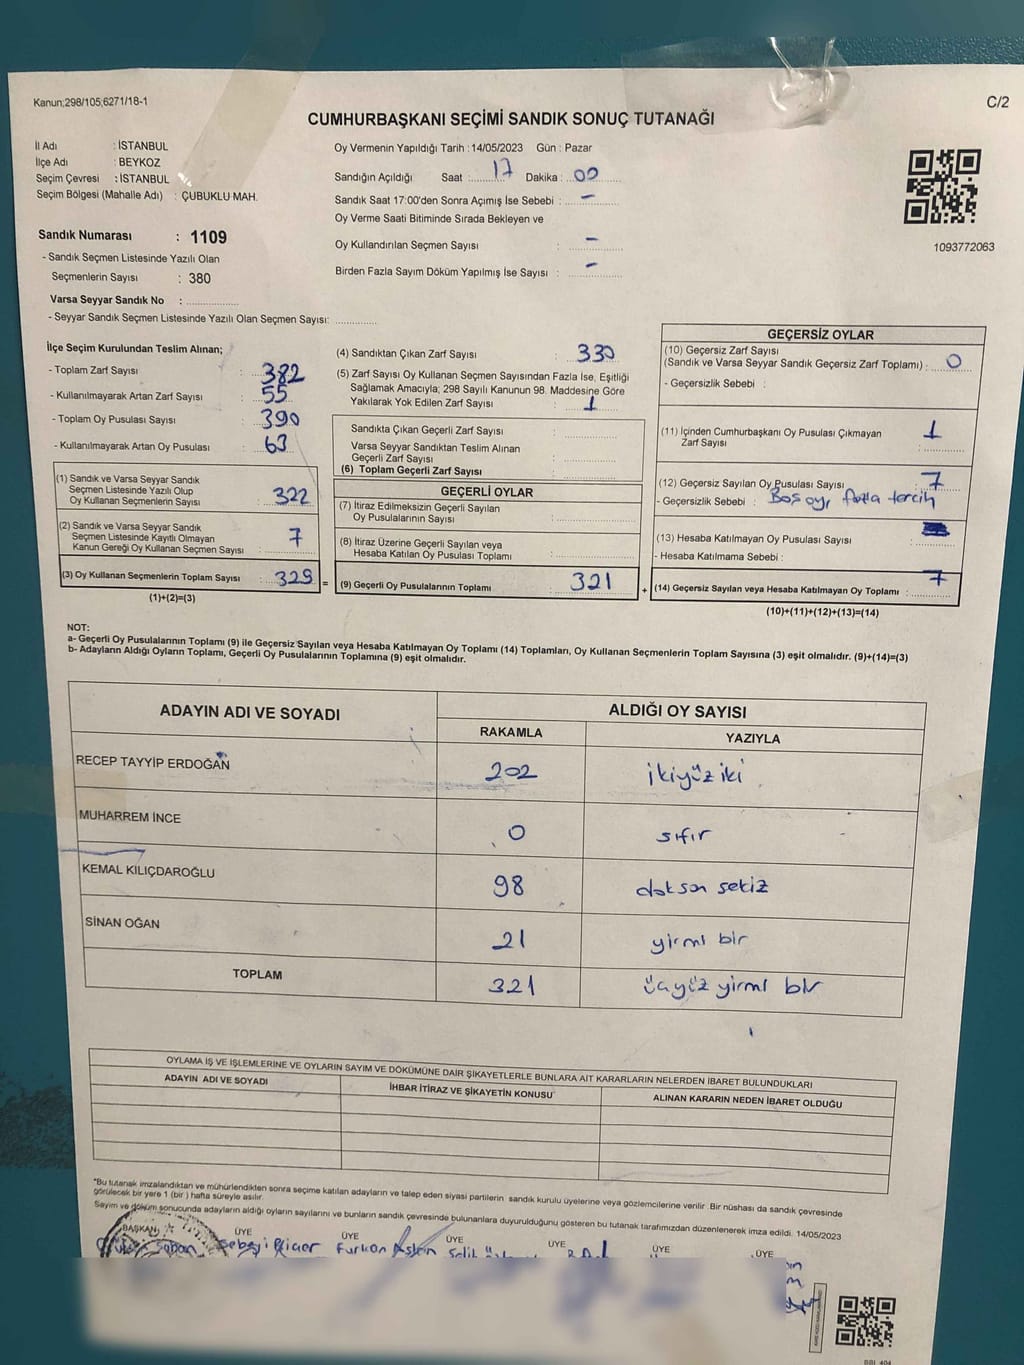 Kanun;298/105;6271/18-1
C/2
CUMHURBAŞKANI SEÇİMİ SANDIK SONUÇ TUTANAĞI
İl Adı : İSTANBUL
İlçe Adı : BEYKOZ
Seçim Çevresi : İSTANBUL
Seçim Bölgesi (Mahalle Adı) : ÇUBUKLU MAH.
Oy Vermenin Yapıldığı Tarih : 14/05/2023 Gün : Pazar
Sandığın Açıldığı Saat : 17 Dakika : 00
Sandık Saat 17:00'den Sonra Açımış İse Sebebi : -
Oy Verme Saati Bitiminde Sırada Bekleyen ve
Oy Kullandırılan Seçmen Sayısı : -
Birden Fazla Sayım Döküm Yapılmış İse Sayısı : -
1093772063
Sandık Numarası : 1109
- Sandık Seçmen Listesinde Yazılı Olan
Seçmenlerin Sayısı : 380
Varsa Seyyar Sandık No :
- Seyyar Sandık Seçmen Listesinde Yazılı Olan Seçmen Sayısı:
İlçe Seçim Kurulundan Teslim Alınan;
- Toplam Zarf Sayısı : 382
- Kullanılmayarak Artan Zarf Sayısı : 55
- Toplam Oy Pusulası Sayısı : 390
- Kullanılmayarak Artan Oy Pusulası : 63
(1) Sandık ve Varsa Seyyar Sandık
Seçmen Listesinde Yazılı Olup
Oy Kullanan Seçmenlerin Sayısı : 322
(2) Sandık ve Varsa Seyyar Sandık
Seçmen Listesinde Kayıtlı Olmayan
Kanun Gereği Oy Kullanan Seçmen Sayısı : 7
(3) Oy Kullanan Seçmenlerin Toplam Sayısı : 329 =
(1)+(2)=(3)
(4) Sandıktan Çıkan Zarf Sayısı : 330
(5) Zarf Sayısı Oy Kullanan Seçmen Sayısından Fazla İse, Eşitliği
Sağlamak Amacıyla; 298 Sayılı Kanunun 98. Maddesine Göre
Yakılarak Yok Edilen Zarf Sayısı : 1
Sandıkta Çıkan Geçerli Zarf Sayısı :
Varsa Seyyar Sandıktan Teslim Alınan
Geçerli Zarf Sayısı :
(6) Toplam Geçerli Zarf Sayısı :
GEÇERLİ OYLAR
(7) İtiraz Edilmeksizin Geçerli Sayılan
Oy Pusulalarının Sayısı :
(8) İtiraz Üzerine Geçerli Sayılan veya
Hesaba Katılan Oy Pusulası Toplamı :
(9) Geçerli Oy Pusulalarının Toplamı 321 +
GEÇERSİZ OYLAR
(10) Geçersiz Zarf Sayısı
(Sandık ve Varsa Seyyar Sandık Geçersiz Zarf Toplamı) : 0
- Geçersizlik Sebebi :
(11) İçinden Cumhurbaşkanı Oy Pusulası Çıkmayan
Zarf Sayısı 1
(12) Geçersiz Sayılan Oy Pusulası Sayısı : 7
- Geçersizlik Sebebi : Boş oy, fazla tercih
(13) Hesaba Katılmayan Oy Pusulası Sayısı :
- Hesaba Katılmama Sebebi :
(14) Geçersiz Sayılan veya Hesaba Katılmayan Oy Toplamı : 7
(10)+(11)+(12)+(13)=(14)
NOT:
a- Geçerli Oy Pusulalarının Toplamı (9) ile Geçersiz Sayılan veya Hesaba Katılmayan Oy Toplamı (14) Toplamları, Oy Kullanan Seçmenlerin Toplam Sayısına (3) eşit olmalıdır. (9)+(14)=(3)
b- Adayların Aldığı Oyların Toplamı, Geçerli Oy Pusulalarının Toplamına (9) eşit olmalıdır.
ADAYIN ADI VE SOYADI
ALDIĞI OY SAYISI
RAKAMLA YAZIYLA
RECEP TAYYİP ERDOĞAN 202 ikiyüz iki
MUHARREM İNCE 0 sıfır
KEMAL KILIÇDAROĞLU 98 doksan sekiz
SİNAN OĞAN 21 yirmi bir
TOPLAM 321 üçyüz yirmi bir
OYLAMA İŞ VE İŞLEMLERİNE VE OYLARIN SAYIM VE DÖKÜMÜNE DAİR ŞİKAYETLERLE BUNLARA AİT KARARLARIN NELERDEN İBARET BULUNDUKLARI
ADAYIN ADI VE SOYADI İHBAR İTİRAZ VE ŞİKAYETİN KONUSU ALINAN KARARIN NEDEN İBARET OLDUĞU
"Bu tutanak imzalandıktan ve mühürlendikten sonra seçime katılan adayların ve talep eden siyasi partilerin sandık kurulu üyelerine veya gözlemcilerine verilir. Bir nüshası da sandık çevresinde
görülecek bir yere 1 (bir) hafta süreyle asılır.
Sayım ve döküm sonucunda adayların aldığı oyların sayılarını ve bunların sandık çevresinde bulunanlara duyurulduğunu gösteren bu tutanak tarafımızdan düzenlenerek imza edildi. 14/05/2023
BAŞKAN ÜYE ÜYE ÜYE ÜYE ÜYE ÜYE
Furkan